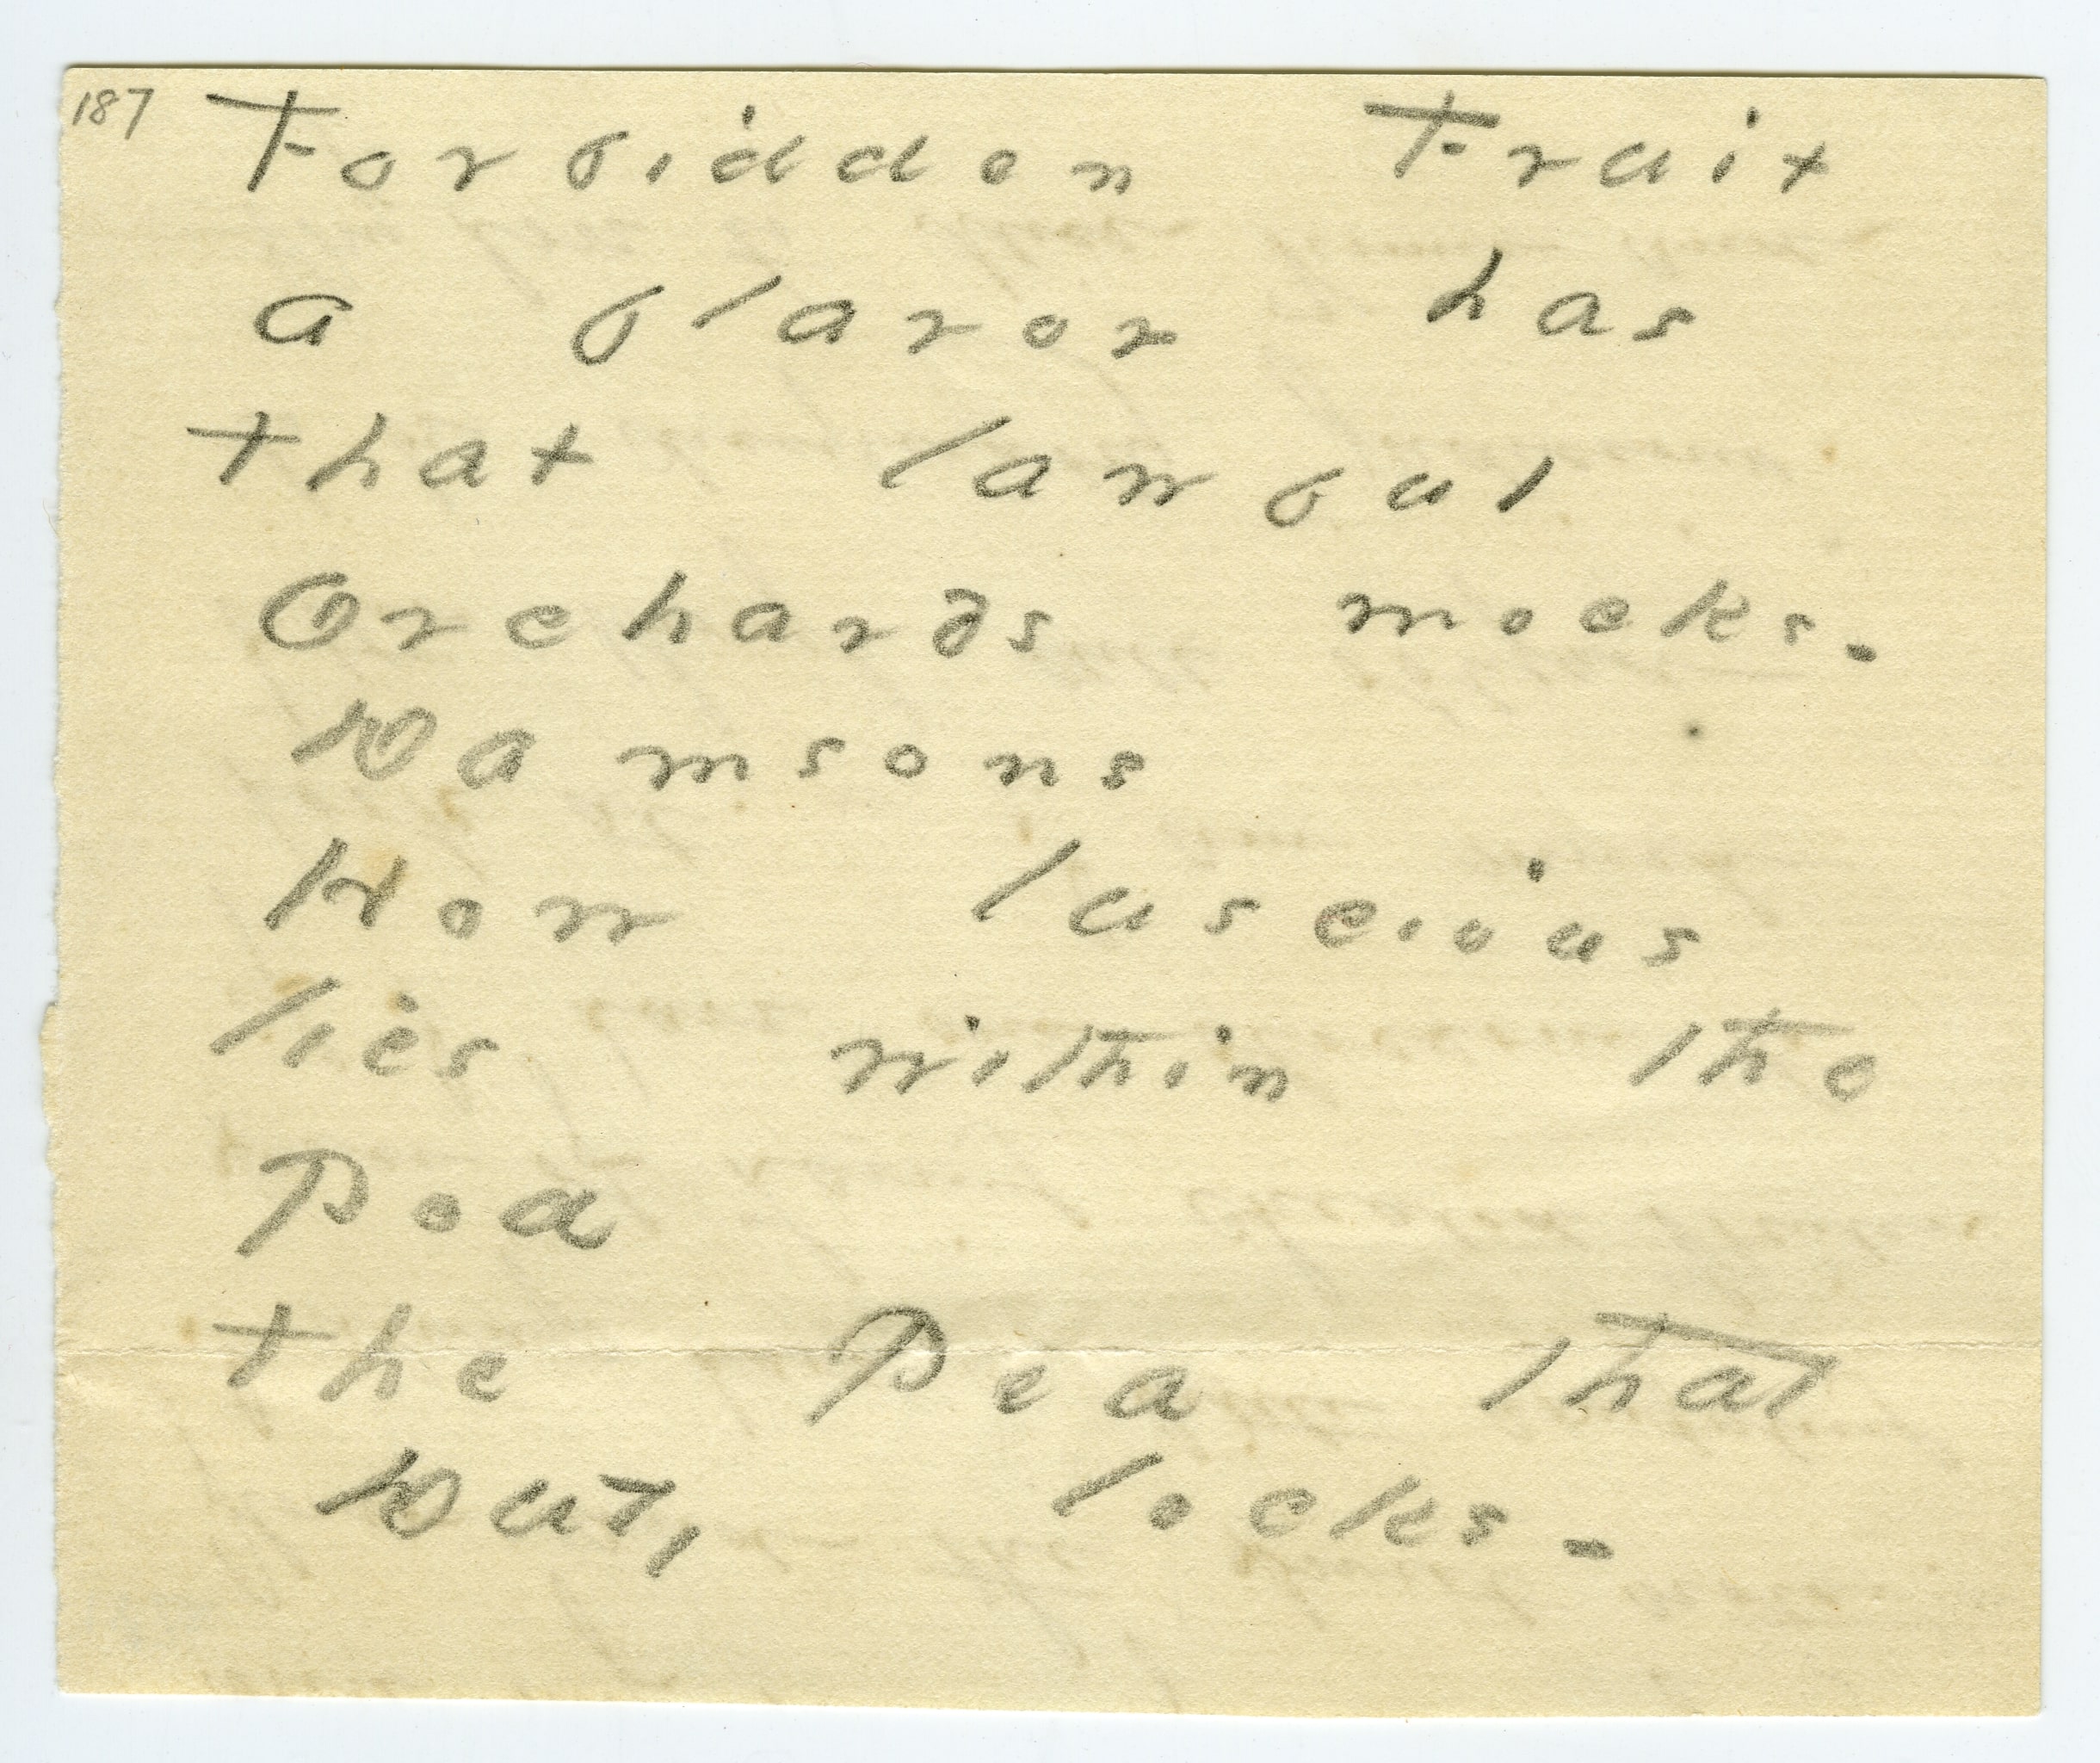 187
Forbidden Fruit
a flavor has
That lawful
Orchards mocks -
Damsons
How luscious
lies within the
Pod
The Pea that
Duty locks -